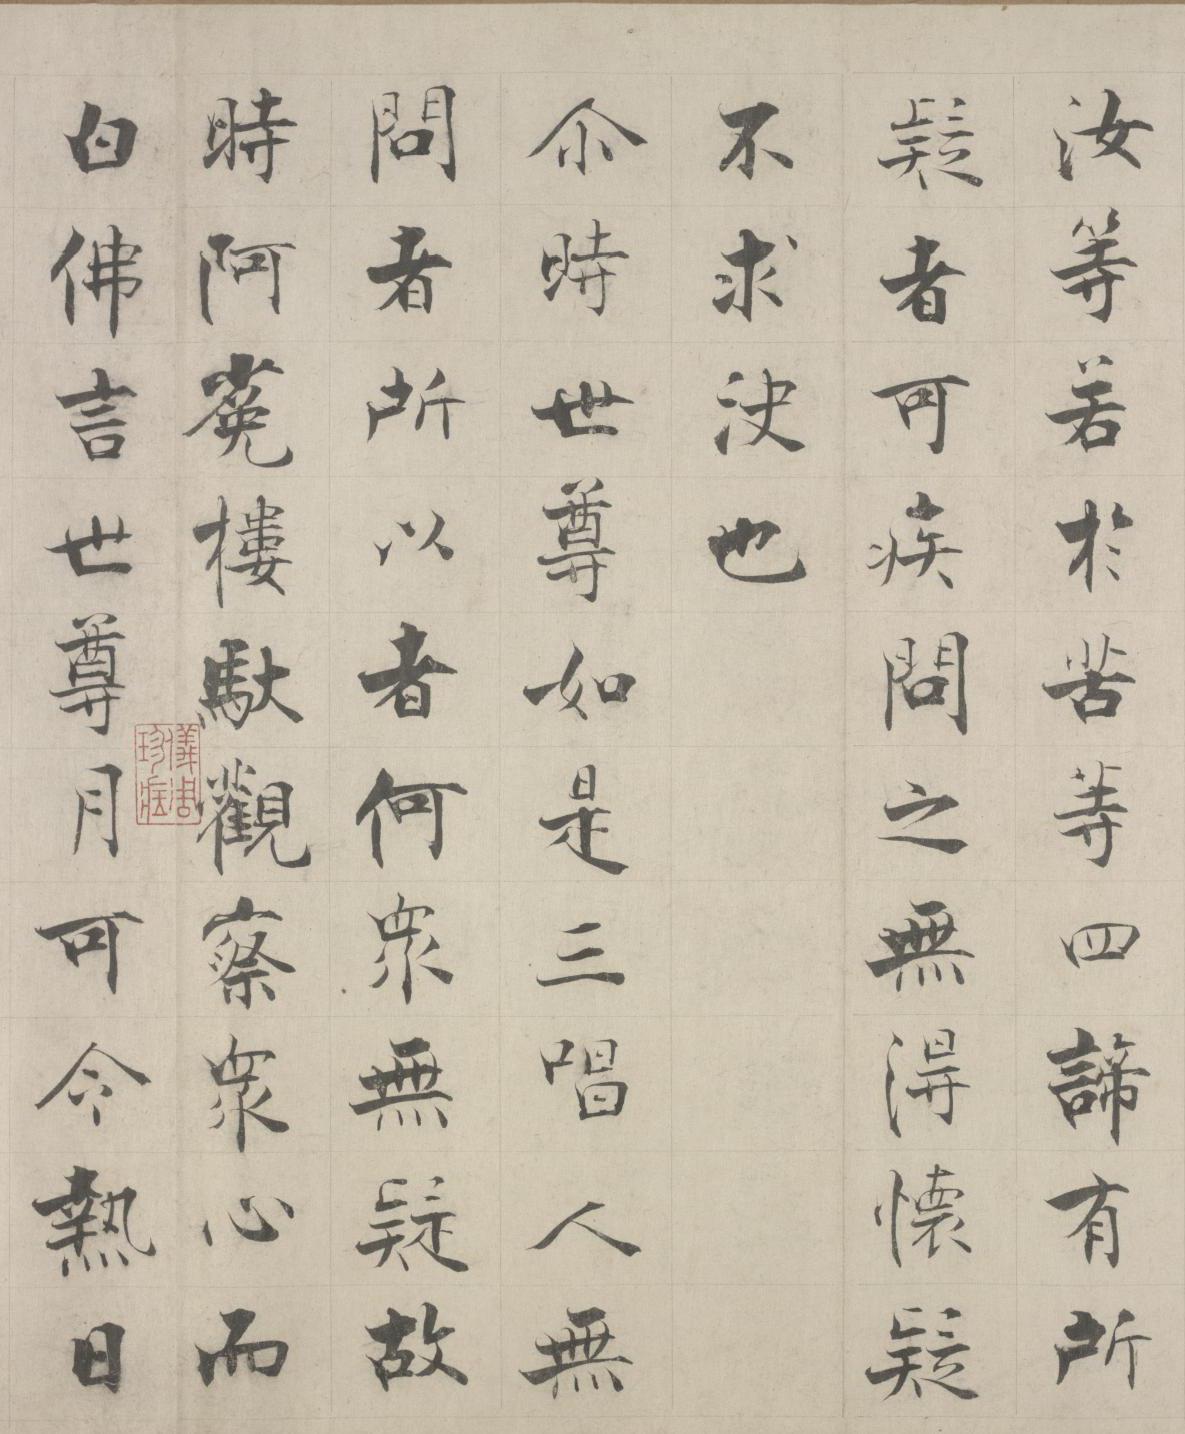 汝等若於苦等四諦有所
疑者可疾問之無得懷疑
不求決也
尒時世尊如是三唱人無
問者所以者何衆無疑故
時阿㝹樓馱觀察衆心而
白佛言世尊月可令熱日
儀周珍藏